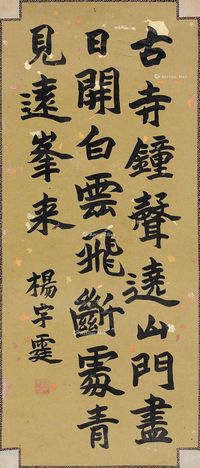 古寺鐘聲遶山門盡
日開白雲飛斷處青
見遠峯来
楊宇霆